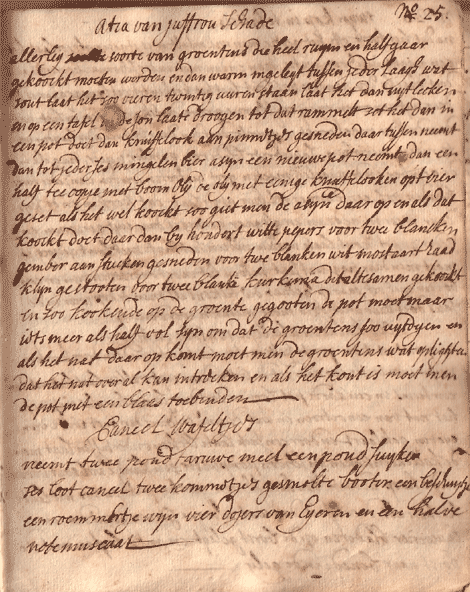 No 25.
atia van juffrou Schade
allerley soorte van groentens die heel ruym en half gaar
gekoockt moeten worden en dan warm ingeleyt tussen ieder laagh wat
zout laat het soo vieren twintig uuren staan laat het dan uyt lecken
en op een tafel in de son laat droogen tot dat rammelt set het dan in
een pot doet dan knuflook aan pinnetjes gesneden daar tussen neemt
dan tot ieder ses mingelen bier asyn een nieuwe pot neemt dan een
half tee copie met boom oly de oly met eenige knuflooken op t vier
geset als het wel koockt soo giet men de asyn daar op en als dat
koockt doet daar dan by hondert witte pepers voor twee blancken
gember aan stucken gesneden voor twee blanken wit mostaart zaad
klyn gestooten voor twee blanke kurkuma dit altesamen gekoockt
en zoo kookende op de groente gegooten de pot moet maar
iets meer als half vol syn om dat de groentens soo uytdyen en
als het nat daar op komt moet men de groentens wat
dat het nat overal kan intrecken en als het kout is moet men
de pot met een blaas toebinden
Caneel Wafeltjes
neemt twee pond taruwe meel een pond suyker
ses loot caneel twee kommetjes gesmolte booter een
een roemmertje wyn vier dojers van Eyeren en een halve
note muscaat